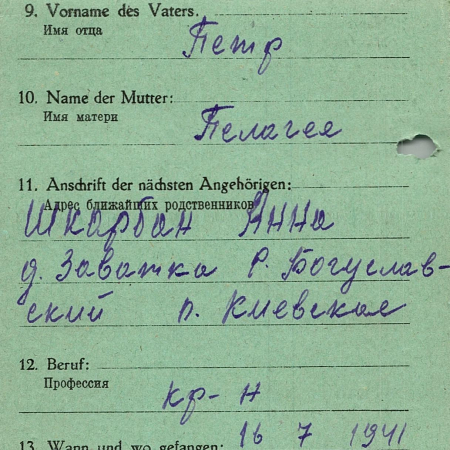 9. Vorname des Vaters.
Имя отца
Петр
10. Name der Mutter:
Имя матери
Пелагея
11. Anschrift der nächsten Angehörigen:
Адрес ближайших родственников
Шкарбан Анна
д. Заватка Р. Богуслав-
ский п. Киевская
12. Beruf:
Профессия
кр-н
13. Wann und wo gefangen: 16 7 1941